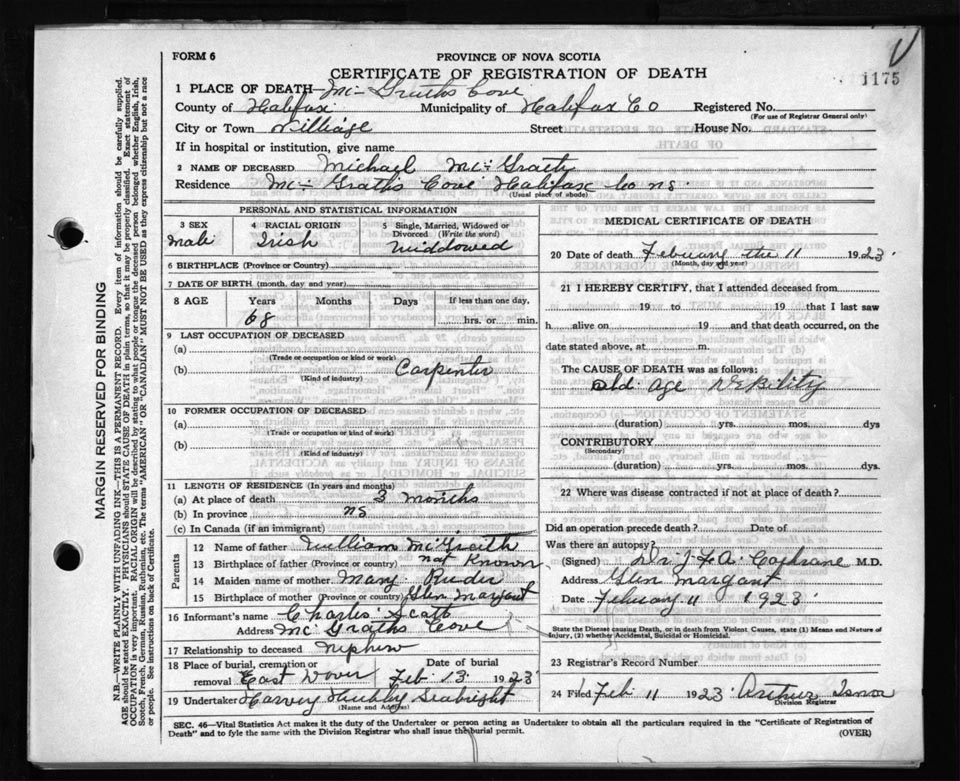 FORM 6
PROVINCE OF NOVA SCOTIA
CERTIFICATE OF REGISTRATION OF DEATH
1175
1 PLACE OF DEATH—Mc Graths Cove
County of Halifax Municipality of Halifax Co Registered No.
(For use of Registrar General only)
City or Town Village Street House No.
If in hospital or institution, give name
2 NAME OF DECEASED Michael Mc Grath
Residence Mc Graths Cove Halifax Co NS
(Usual place of abode)
PERSONAL AND STATISTICAL INFORMATION
3 SEX Male
4 RACIAL ORIGIN Irish
5 Single, Married, Widowed or Divorced (Write the word)
Widdowed
6 BIRTHPLACE (Province or Country)
7 DATE OF BIRTH (month, day and year)
8 AGE Years Months Days If less than one day,
68 hrs. or min.
9 LAST OCCUPATION OF DECEASED
(a)
(Trade or occupation or kind or work)
(b) Carpenter
(Kind of industry)
10 FORMER OCCUPATION OF DECEASED
(a)
(Trade or occupation or kind of work)
(b)
(Kind of industry)
11 LENGTH OF RESIDENCE (In years and months)
(a) At place of death 3 months
(b) In province NS
(c) In Canada (if an immigrant)
Parents
12 Name of father William McGraith
13 Birthplace of father (Province or country) not Known
14 Maiden name of mother Mary
15 Birthplace of mother (Province or country) Glen Margaret
16 Informant's name Charles Scott
Address Mc Graths Cove
17 Relationship to deceased nephew
18 Place of burial, cremation or removal East Dover
Date of burial Feb 13 1923
19 Undertaker Harvey Hubly Seabright
(Name and Address)
MEDICAL CERTIFICATE OF DEATH
20 Date of death February the 11 1923
(Month, day and year)
21 I HEREBY CERTIFY, that I attended deceased from
19 to 19 that I last saw
h alive on 19 and that death occurred, on the
date stated above, at m.
The CAUSE OF DEATH was as follows:
old age Debility
(duration) yrs. mos. dys
CONTRIBUTORY
(Secondary)
(duration) yrs. mos. dys.
22 Where was disease contracted if not at place of death?
Did an operation precede death? Date of
Was there an autopsy?
(Signed) Dr J F A Cochrane M.D.
Address Glen Margaret
Date February 11 1923
State the Disease causing Death, or in death from Violent Causes, state (1) Means and Nature of
Injury, (2) whether Accidental, Suicidal or Homicidal.
23 Registrar's Record Number
24 Filed Feb 11 1923 Arthur
Division Registrar
SEC. 46—Vital Statistics Act makes it the duty of the Undertaker or person acting as Undertaker to obtain all the particulars required in the "Certificate of Registration of
Death" and to fyle the same with the Division Registrar who shall issue the burial permit.
(OVER)
MARGIN RESERVED FOR BINDING
N.B.—WRITE PLAINLY WITH UNFADING INK—THIS IS A PERMANENT RECORD. Every item of information should be carefully supplied.
AGE should be stated EXACTLY. PHYSICIANS should STATE CAUSE OF DEATH in plain terms, so that it may be properly classified. Exact statement of
OCCUPATION is very important. RACIAL ORIGIN will be described by stating to what people or tongue the deceased person belonged whether English, Irish,
Scotch, French, German, Russian, Ruthenian, etc. The terms "AMERICAN" OR "CANADIAN" MUST NOT BE USED as they express citizenship but not a race
or people. See instructions on back of Certificate.